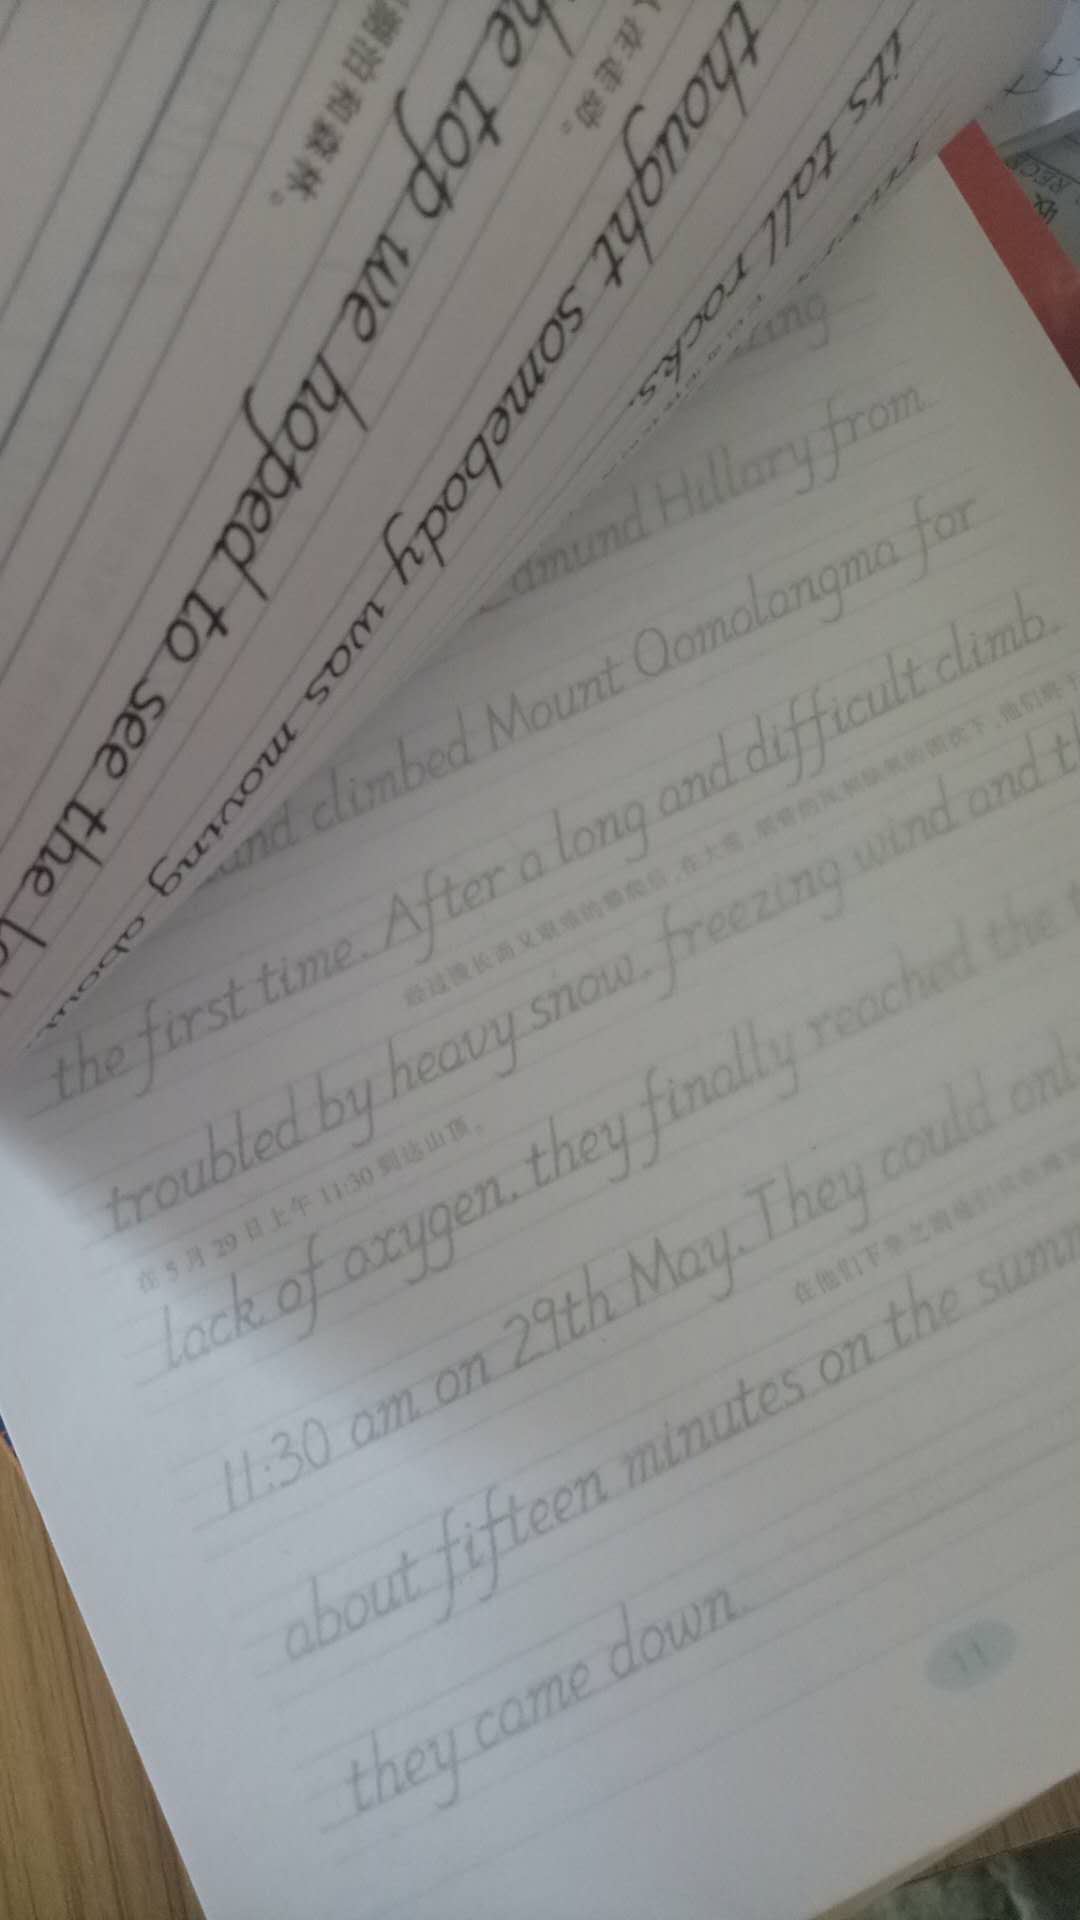 湖泊和森林。
he top we hoped to see the
人在走动。
thought somebody was moving about
its tall rocks.
Hillary from
and climbed Mount Qomolangma for
the first time. After a long and difficult climb
经过漫长而又艰难的攀爬后,在大雪、
troubled by heavy snow, freezing wind and
在 5 月 29 日上午 11:30 到达山顶。
lack of oxygen, they finally reached the
11:30 am on 29th May. They could
在他们下来之前
about fifteen minutes on the
they came down.
11